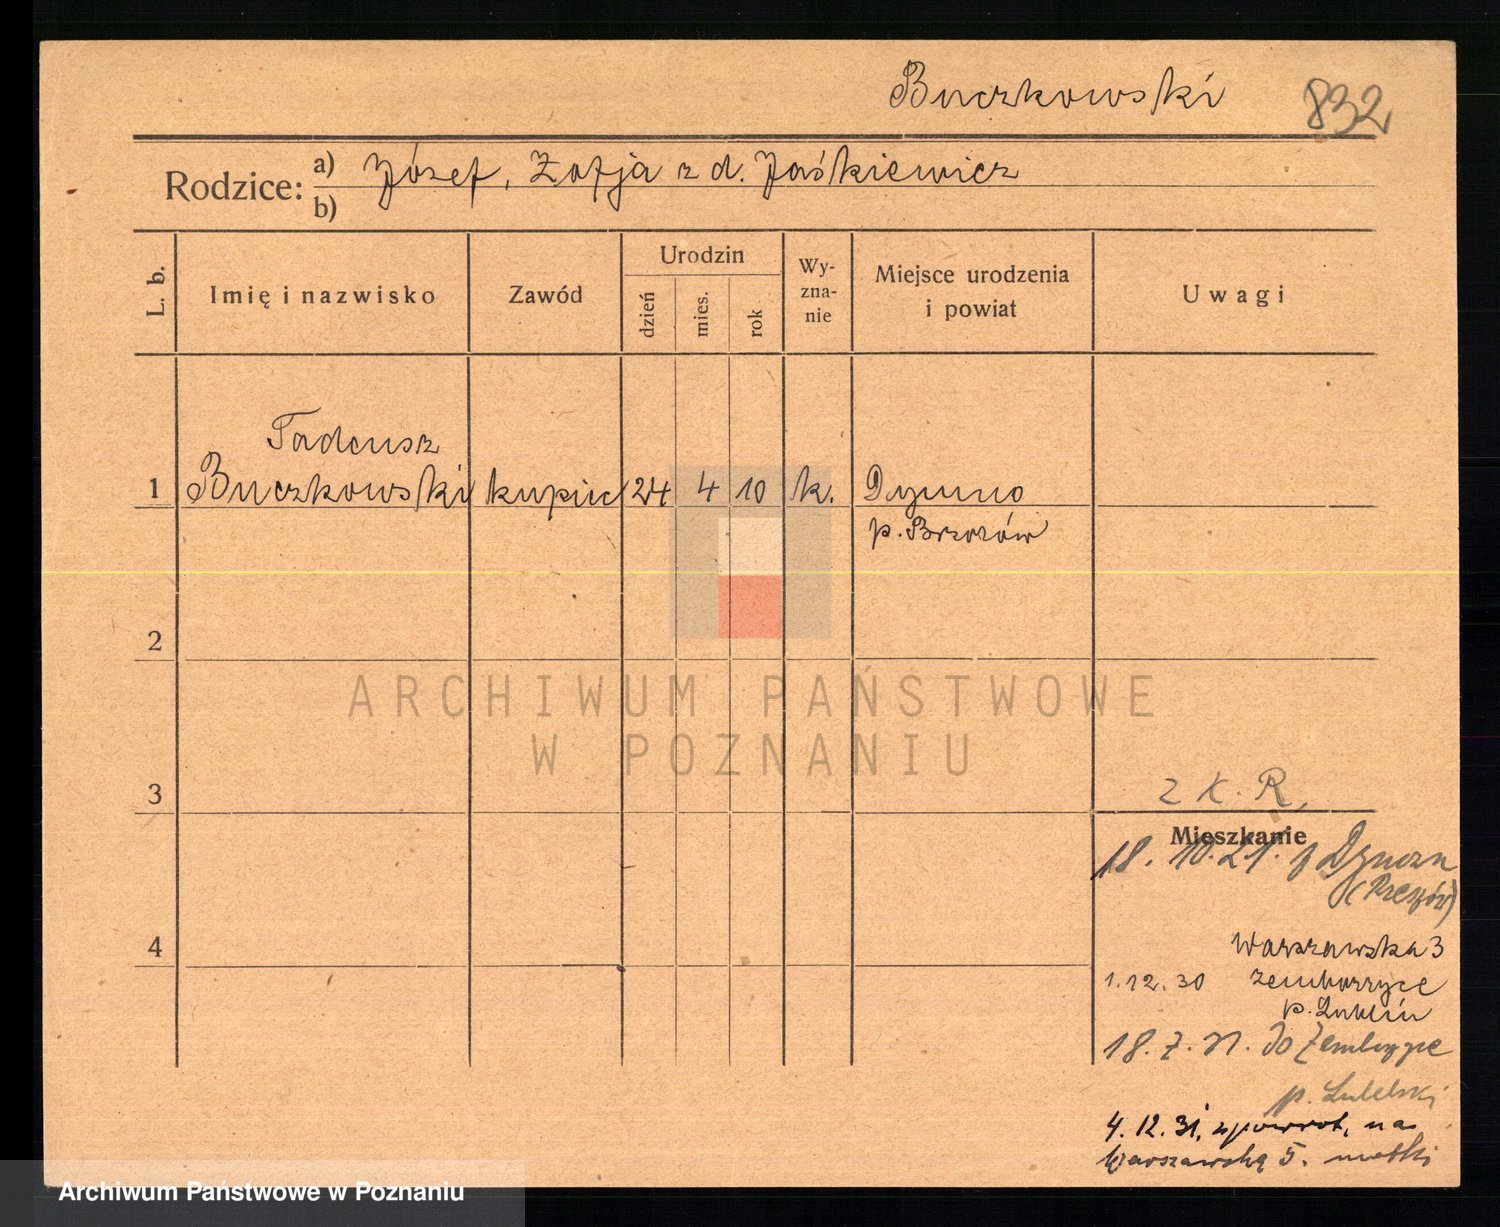 Buczkowski 832
Rodzice: a) Józef, Zofja z d. Jaśkiewicz
b)
L. b. Imię i nazwisko Zawód Urodzin dzień mies. rok Wy-zna-nie Miejsce urodzenia i powiat Uwagi
Tadeusz
1 Buczkowski kupiec 24 4 10 k. Dynno
p. Brzozów
2
ARCHIWUM PAŃSTWOWE
W POZNANIU
3
Z K. R.
Mieszkanie
18. 10. 21. z
4
Warszawska 3
1.12.30 Zemborzyce
p. Lublin
18. 7. 31. do Zemborzyce
p. Lubelski
4. 12. 31. zpowrot, na
Warszawską 5.
Archiwum Państwowe w Poznaniu